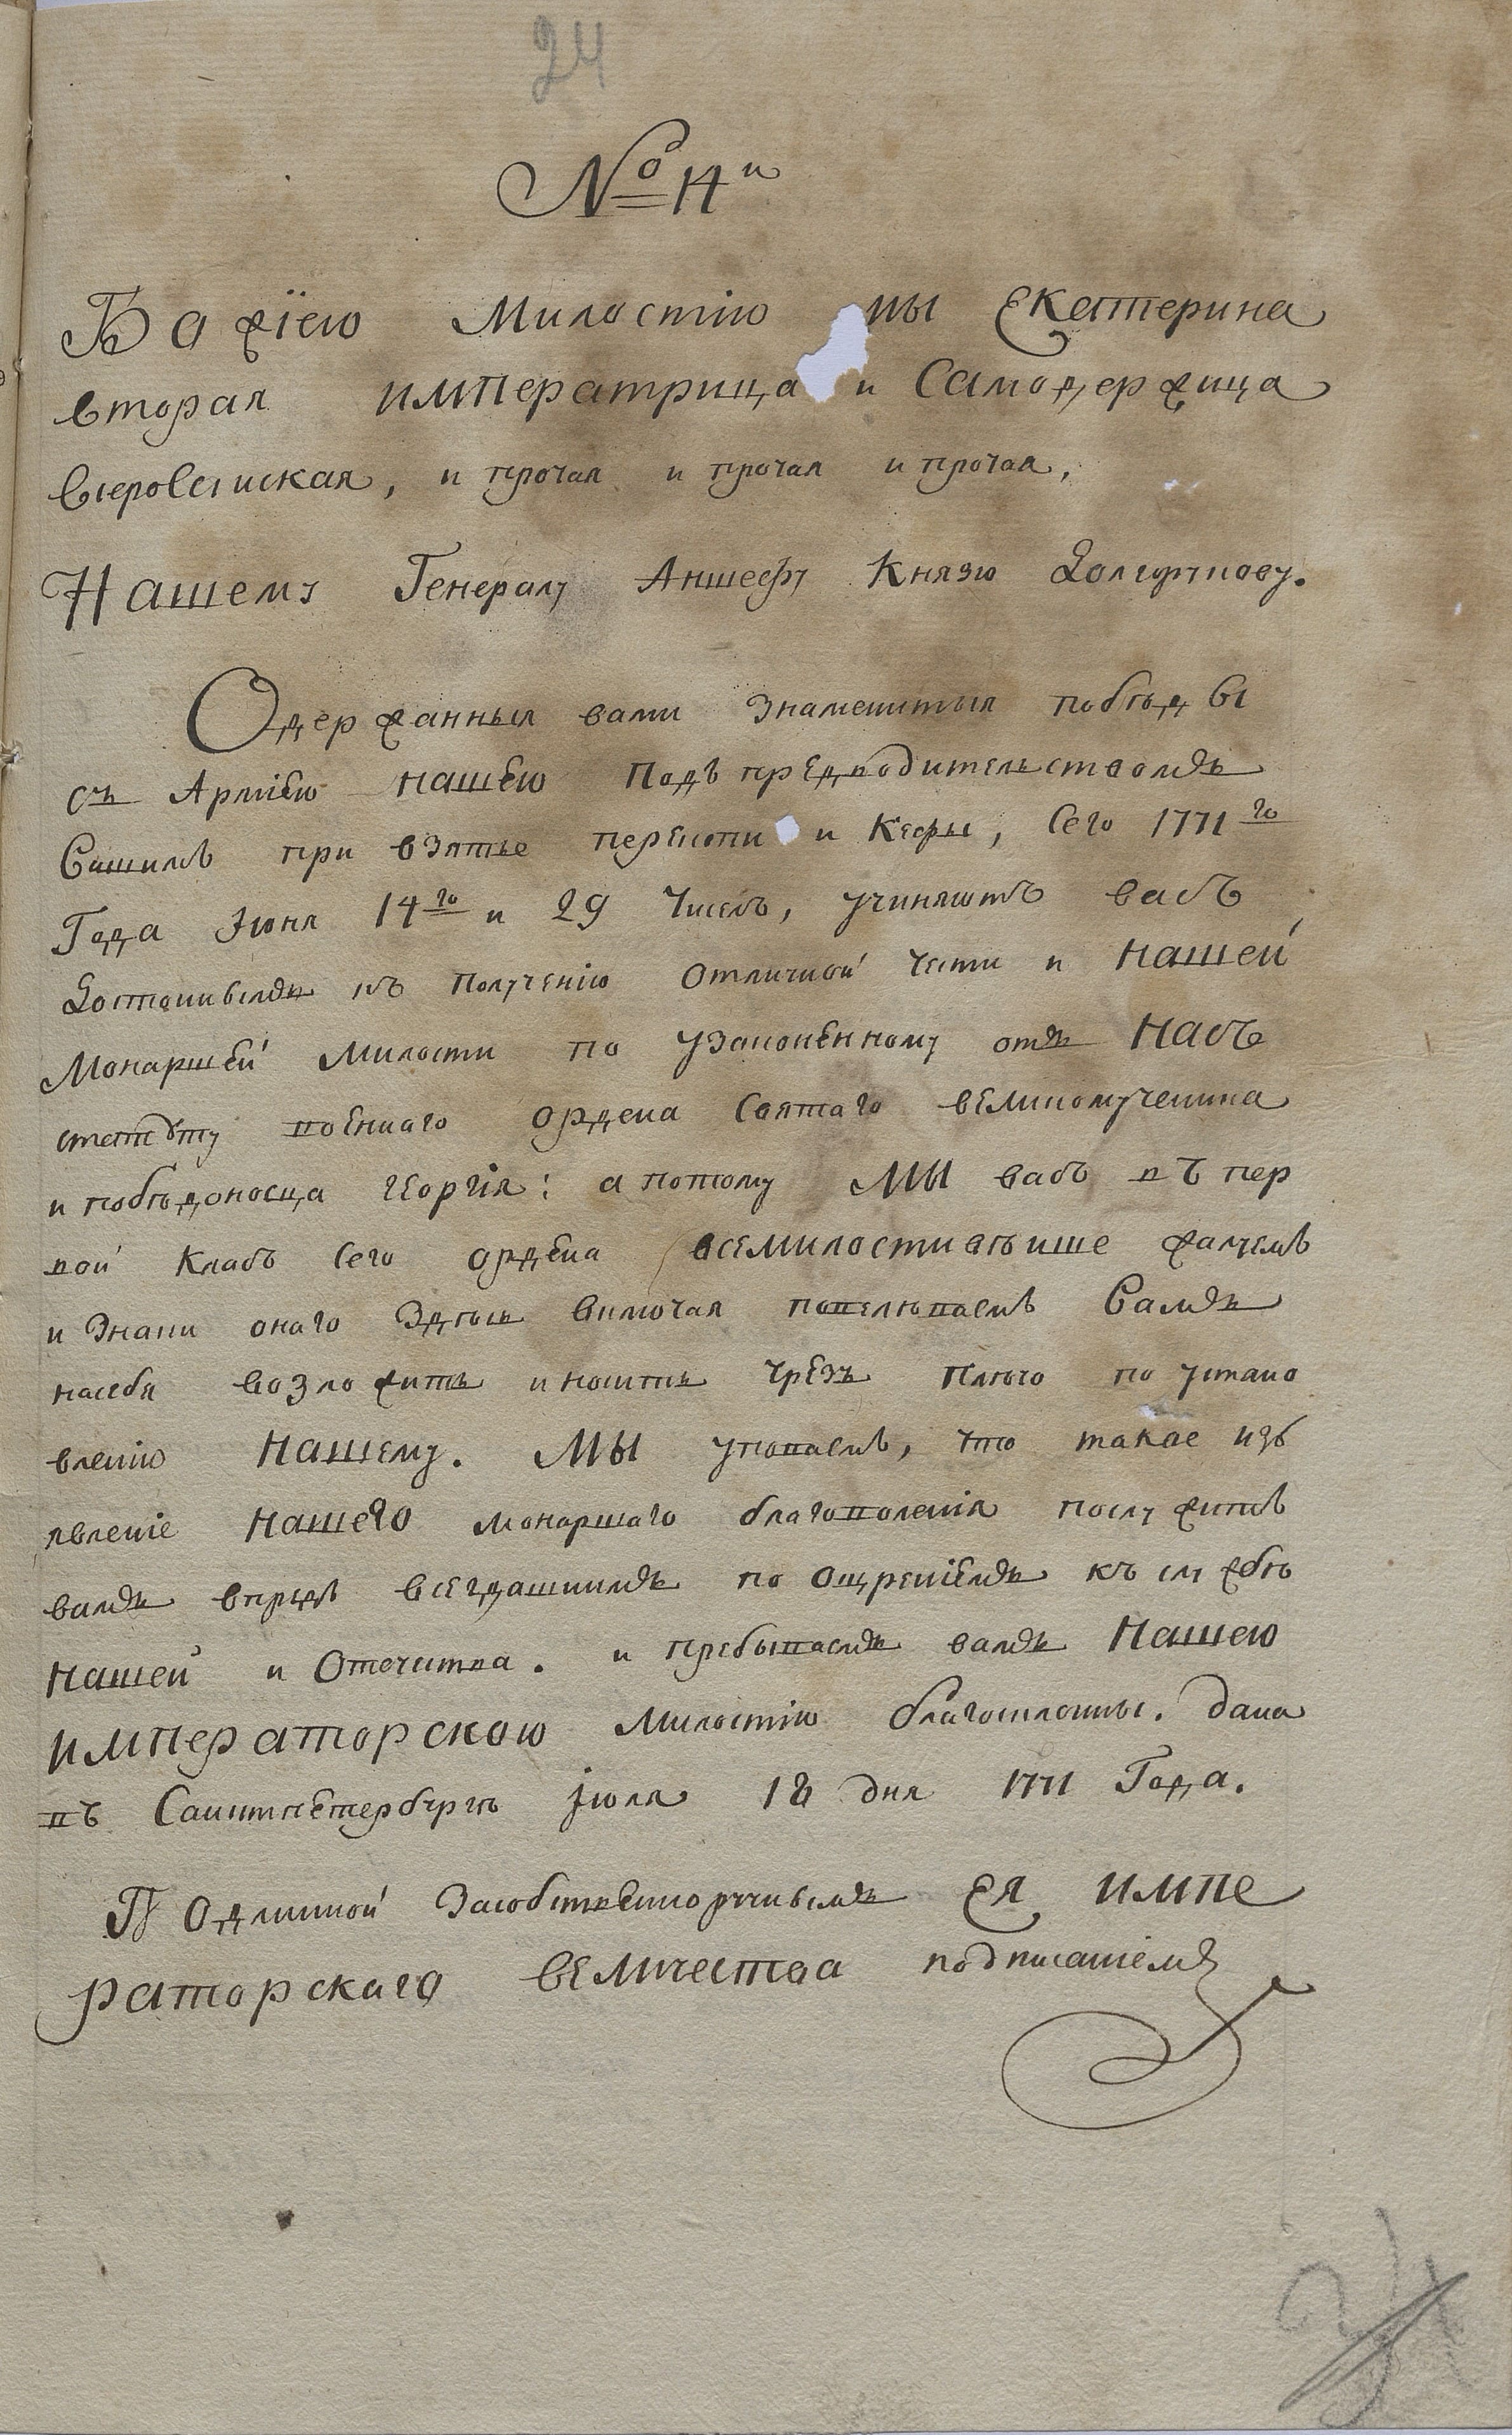 24
№ 4й
Божїею Милостїю мы Екатерина
вторая императрица и Самодержица
всеросїиская, и протчая и протчая и протчая,
Нашему Генералу Аншефу Князю Долгорукову.
Одержанныя вами знаменитыя побѣды
съ Армїею нашею подъ предводительствомъ
вашимъ при взятье перекопи и Кефы, сего 1771го
Года Июня 14го и 29 чиселъ, учиняютъ васъ
достоинымъ къ полученїю отличной чести и нашей
Монаршей милости по узаконенному отъ насъ
статуту военнаго ордена святаго великомученика
и побѣдоносца георгїя: а потому мы васъ въ пер
вой класъ сего ордена всемилостивѣише жалуемъ
и знаки онаго здѣсь включая повелѣваемъ вамъ
насебя возложить и носить чрезъ плечо по устано
вленїю нашему. мы уповаемъ, что такое изъ
явленїе нашего монаршаго благоволенїя послужитъ
вамъ впредь всегдашнимъ поощренїемъ къ службѣ
нашей и Отечества. и пребываемъ вамъ нашею
императорскою милостїю благосклонны. дана
въ Санктпетербургѣ июля 18 дня 1771 Года.
Подлинной засобственноручнымъ ея импе
раторскаго величества подписанїемъ